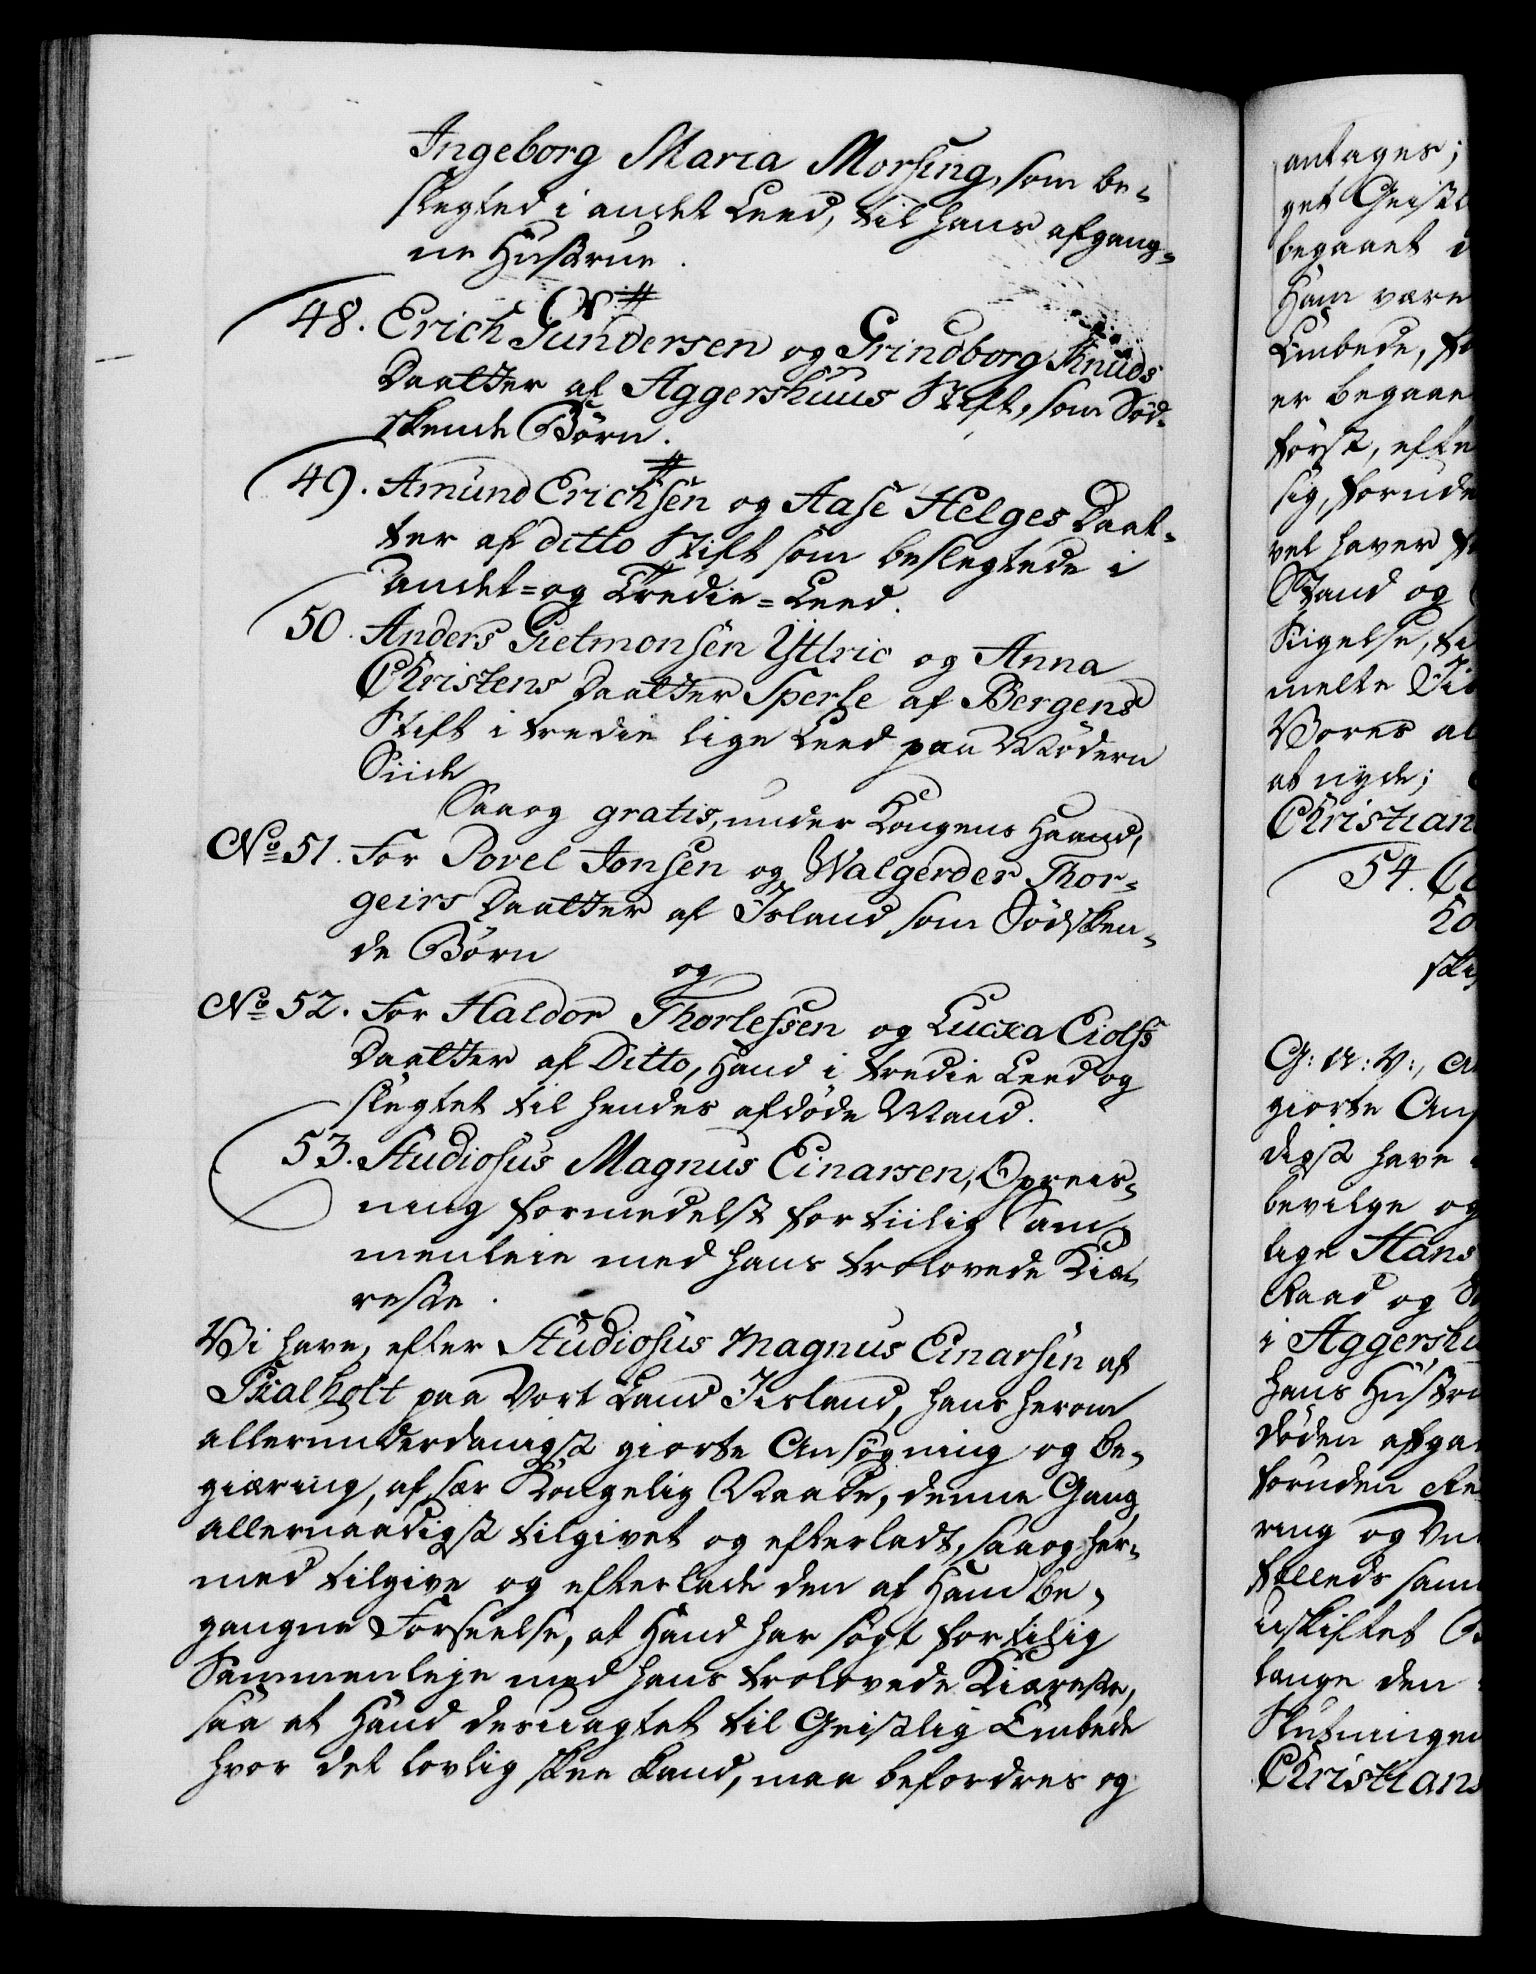 Ingeborg Maria Morsing, som be-
slegted i andet Leed, til hans afgang-
ne Hustrue.
48. Erich Gundersen og Grindborg Knuds
Daatter af Aggershuus Stift, som Sød-
skende Børn.
49. Amund Erichsen og Aase Helges Daat-
ter af ditto Stift som beslegtede i
andet- og Tredie-Leed.
50. Anders Gietmonsen Ÿtlrie og Anna
Christens Daatter Sperle af Bergens
Stift i tredie lige Leed paa Mødern
Siide
Saaog gratis, under Kongens Haand,
No 51. For Povel Jonsen og Walgerder Thor-
geirs Daatter af Island som Sødsken-
de Børn
og
No 52. For Haldor Thorlefsen og Lucxa Eiolfs
Daatter af Ditto, Hand i tredie Leed og
slegtet til hendes afdøde Mand.
53. Studiosus Magnus Einarsen, Opreis-
ning formedelst for tiilig Sam-
menleie med hans trolovede Kiæ-
reste.
Vi have, efter Studiosus Magnus Einarsen af
Skalholt paa Vort Land Iisland, hans herom
allerunderdanigst giorte Ansøgning og be-
giæring, af sær Kongelig Naade, denne Gang
allernaadigst tilgivet og efterladt, saaog her-
med tilgive og efterlade den af Ham be-
gangne Forseelse, at Hand har søgt for tilig
Sammenleje med hans trolovede Kiæreste,
saa at Hand desuagtet til Geistlig Embede
hvor det lovlig skee kand, maa befordres og
antages;
get Geistl
begaaet i
Ham være
Embede, fo
er begaae
først, efte
sig, forude
vel haver
Stand og
Stigelse, ti
melte
Vores al
at nyde;
Christian
54.
G: A: V:,
giorte Ans
digst have
bevilge og
lige Hans
Raad og
i Aggershu
hans Hustru
døden afga
foruden Re
ring og
felleds sam
uskiftet
lange den
Slutningen
Christians